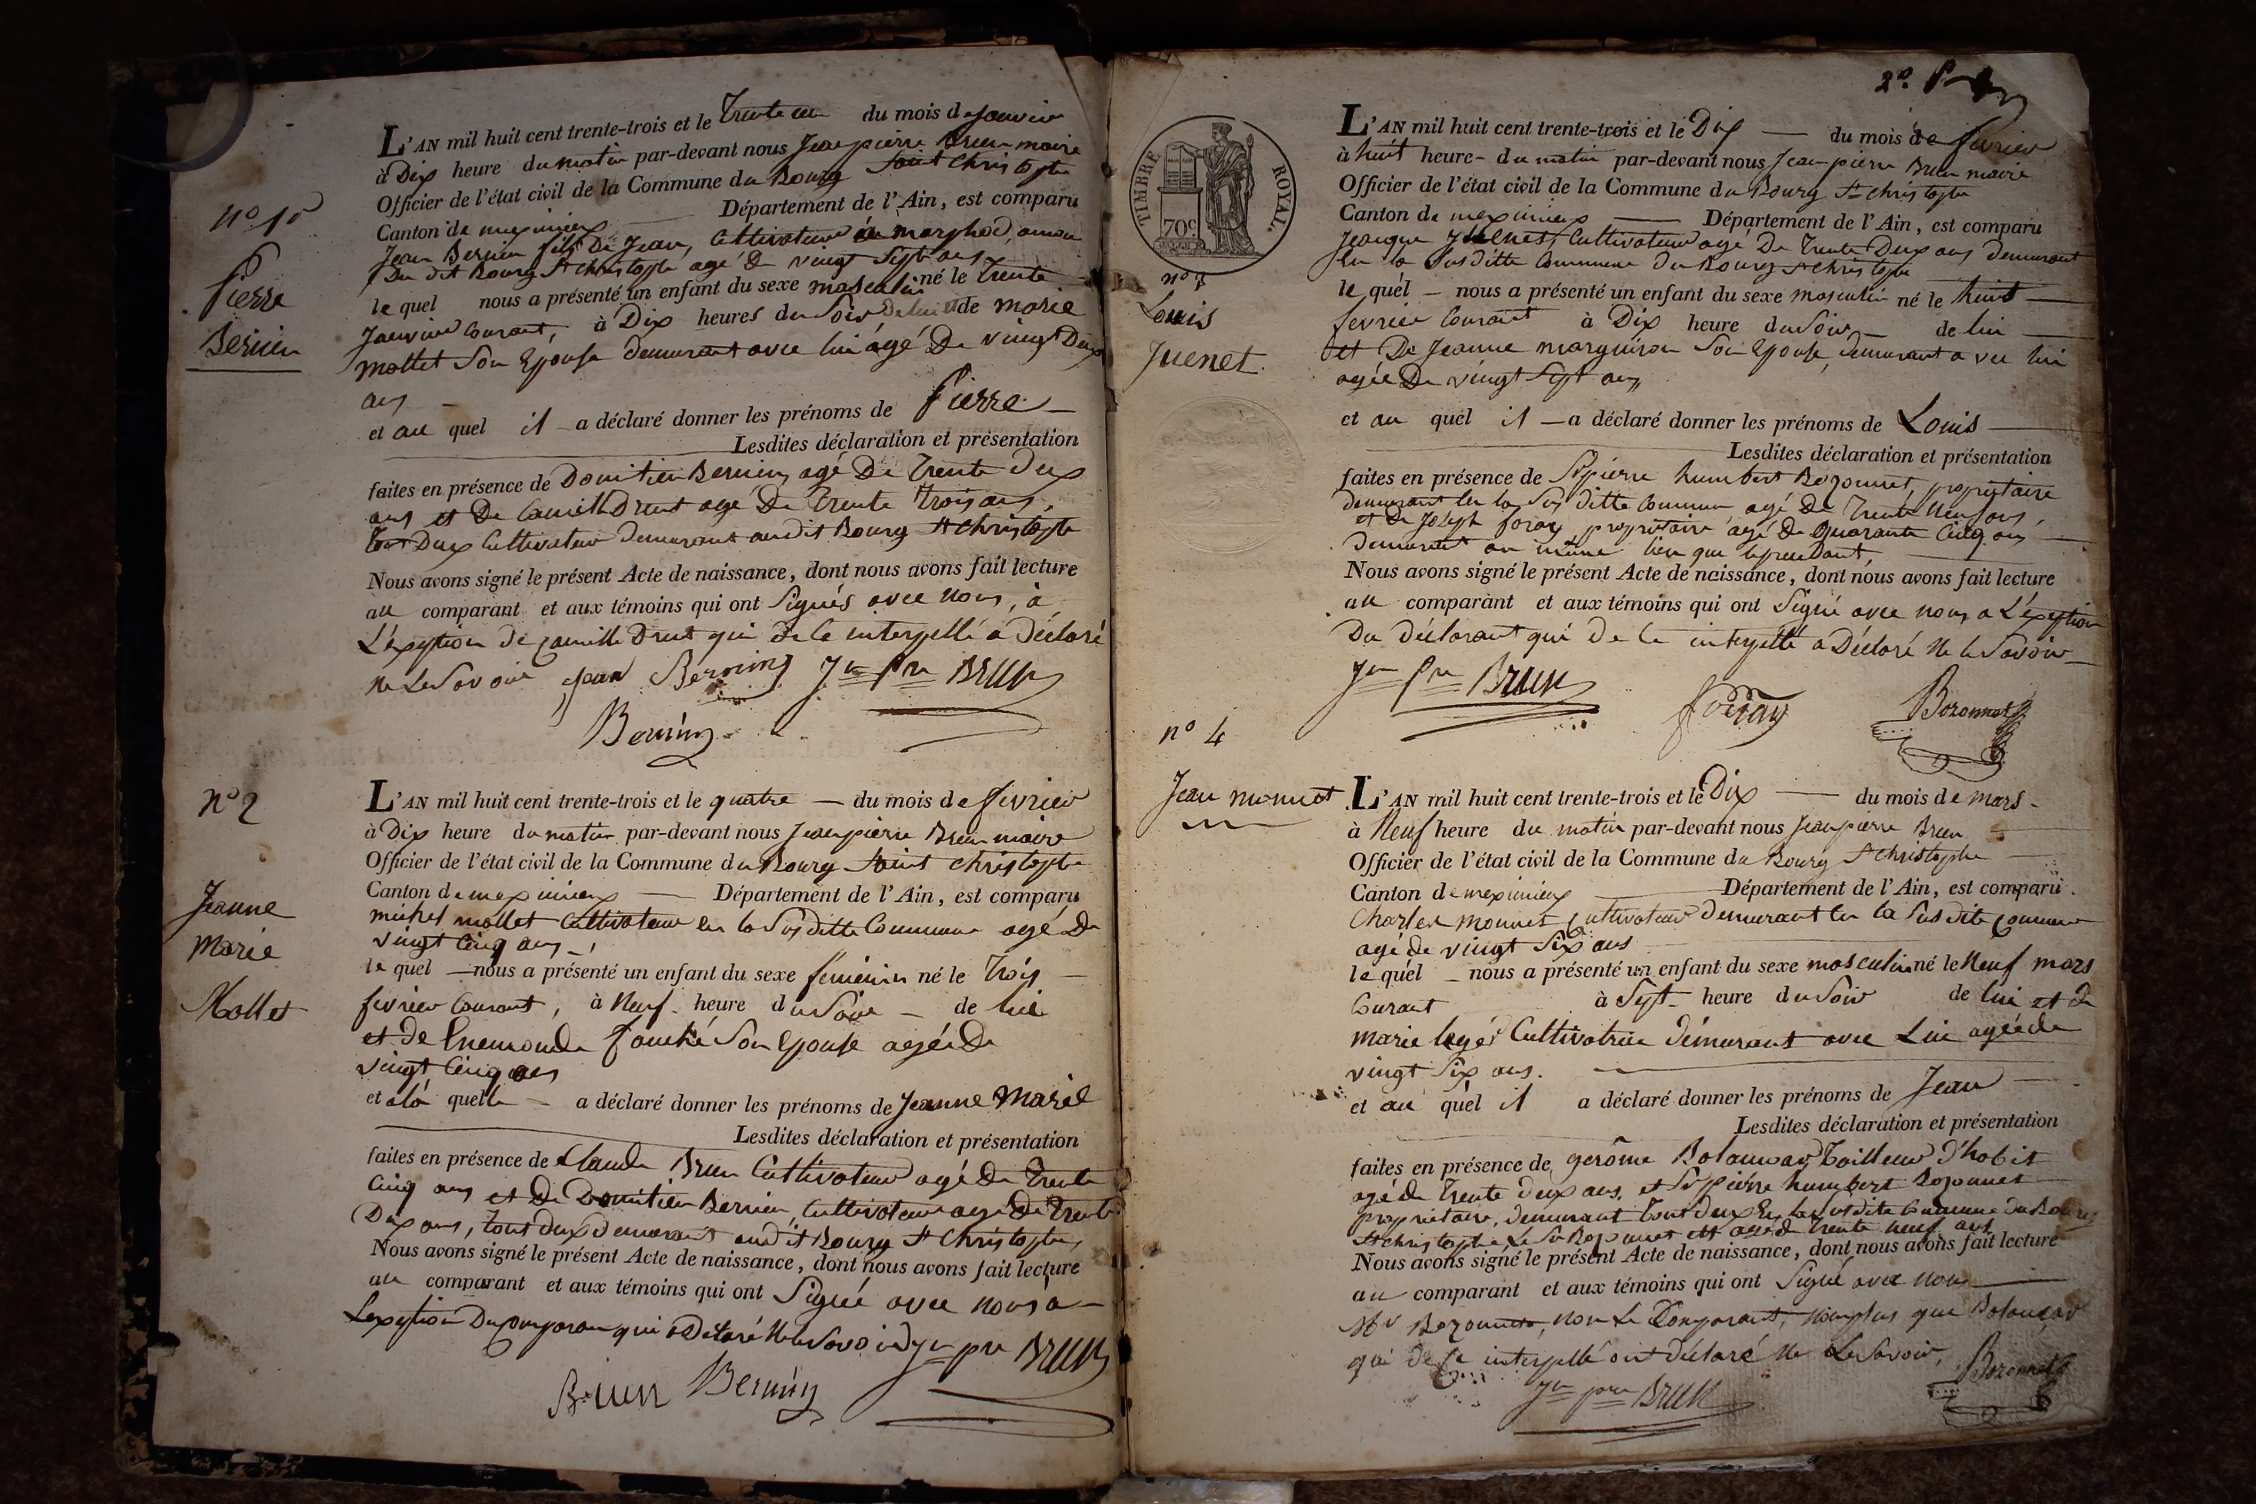 L'AN mil huit cent trente-trois et le Trente un du mois de Janvier
à Dix heure du matin par-devant nous Jean pierre Brun maire
Officier de l'état civil de la Commune du Bourg Saint Christophe
Canton de meximieux Département de l'Ain, est comparu
Jean Bernin fils De Jean, Cultivateur
Du dit Bourg St Christophe agé De vingt Sept ans
le quel nous a présenté un enfant du sexe masculin né le Trente
Janvier Courant, à Dix heures du Soir de lui et de marie
mollet Son Epouse demeurant avec lui âgé De vingt Deux
ans
et au quel il a déclaré donner les prénoms de Pierre
Lesdites déclaration et présentation
faites en présence de Domitien Bernin, agé De Trente Deux
ans et De Camille Drut agé De Trente Trois ans,
Tout Deux Cultivateur demeurant audit Bourg St Christophe
Nous avons signé le présent Acte de naissance, dont nous avons fait lecture
au comparant et aux témoins qui ont Signés avec Nous, à
L'exeption de Camille Drut qui de ce interpellé a Déclaré
Ne Le Savoir Jean Bernin Jn Pre BRUN
Bernin
n° 1er
Pierre
Bernin
n° 2
Jeanne
Marie
Mollet
L'AN mil huit cent trente-trois et le quatre du mois de fevrier
à Dix heure du matin par-devant nous Jean pierre Brun maire
Officier de l'état civil de la Commune du Bourg Saint Christophe
Canton de meximieux Département de l'Ain, est comparu
michel mollet Cultivateur en la Sus ditte Commune agé De
vingt Cinq ans,
le quel nous a présenté un enfant du sexe feminin né le Trois
fevrier Courant, à Neuf heure du Soir de lui
et de Enemonde fouché Son Epouse agée De
vingt Cinq ans
et à la quelle a déclaré donner les prénoms de Jeanne Marie
Lesdites déclaration et présentation
faites en présence de Claude Brun Cultivateur agé De Trente
Cinq ans et De Domitien Bernin, Cultivateur agé De Trente
Deux ans, tout deux demeurant audit Bourg St Christophe,
Nous avons signé le présent Acte de naissance, dont nous avons fait lecture
au comparant et aux témoins qui ont Signé avec nous a
L'exeption Du Comparant qui a Déclaré Ne le Savoir Jn pre BRUN
Brun Bernin
2e
TIMBRE ROYAL.
70c
n° 3
Louis
Juenet
L'AN mil huit cent trente-trois et le Dix du mois de fevrier
à huit heure du matin par-devant nous Jean pierre Brun maire
Officier de l'état civil de la Commune du Bourg St Christophe
Canton de meximieux Département de l'Ain, est comparu
Jacque Juenet, Cultivateur agé De Trente Deux ans demeurant
en la Susditte Commune du Bourg St Christophe
le quel nous a présenté un enfant du sexe masculin né le huit
fevrier Courant à Dix heure du Soir de lui
et De Jeanne marguiron Son Epouse, demeurant avec lui
agée De vingt Sept ans,
et au quel il a déclaré donner les prénoms de Louis
Lesdites déclaration et présentation
faites en présence de Sr pierre humbert Bozonnet, propriétaire
demeurant en la Sus ditte Commune agé De Trente Neuf ans,
et De Joseph foray propriétaire agé De Quarante Cinq ans
demeurant au même lieu que le precedant,
Nous avons signé le présent Acte de naissance, dont nous avons fait lecture
au comparant et aux témoins qui ont Signé avec nous a L'exeption
Du Déclarant qui De ce interpellé a Déclaré Ne le Savoir
Jn Pre BRUN foray Bozonnet
n° 4
Jean monnet
L'AN mil huit cent trente-trois et le Dix du mois de mars
à Neuf heure du matin par-devant nous Jean pierre Brun
Officier de l'état civil de la Commune du Bourg St Christophe
Canton de meximieux Département de l'Ain, est comparu
Charles monnet Cultivateur demeurant en la Sus dite Commune
agé de vingt Six ans
le quel nous a présenté un enfant du sexe masculin né le Neuf mars
Courant à Sept heure du Soir de lui et de
marie Cultivatrice démeurant avec Lui agée de
vingt Six ans.
et au quel il a déclaré donner les prénoms de Jean
Lesdites déclaration et présentation
faites en présence de gerôme Tailleur d'habit
agé de Trente deux ans, et Sr pierre humbert Bozonnet
propriétaire, demeurant Tout deux En la susdite Commune du Bourg
St Christophe, Le Sr Bozonnet est agé de Trente neuf ans
Nous avons signé le présent Acte de naissance, dont nous avons fait lecture
au comparant et aux témoins qui ont Signé avec nous
Mr Bozonnet, non Le Comparant, non plus que
qui de ce interpellé ont déclaré Ne Le Savoir,
Jn pre BRUN Bozonnet